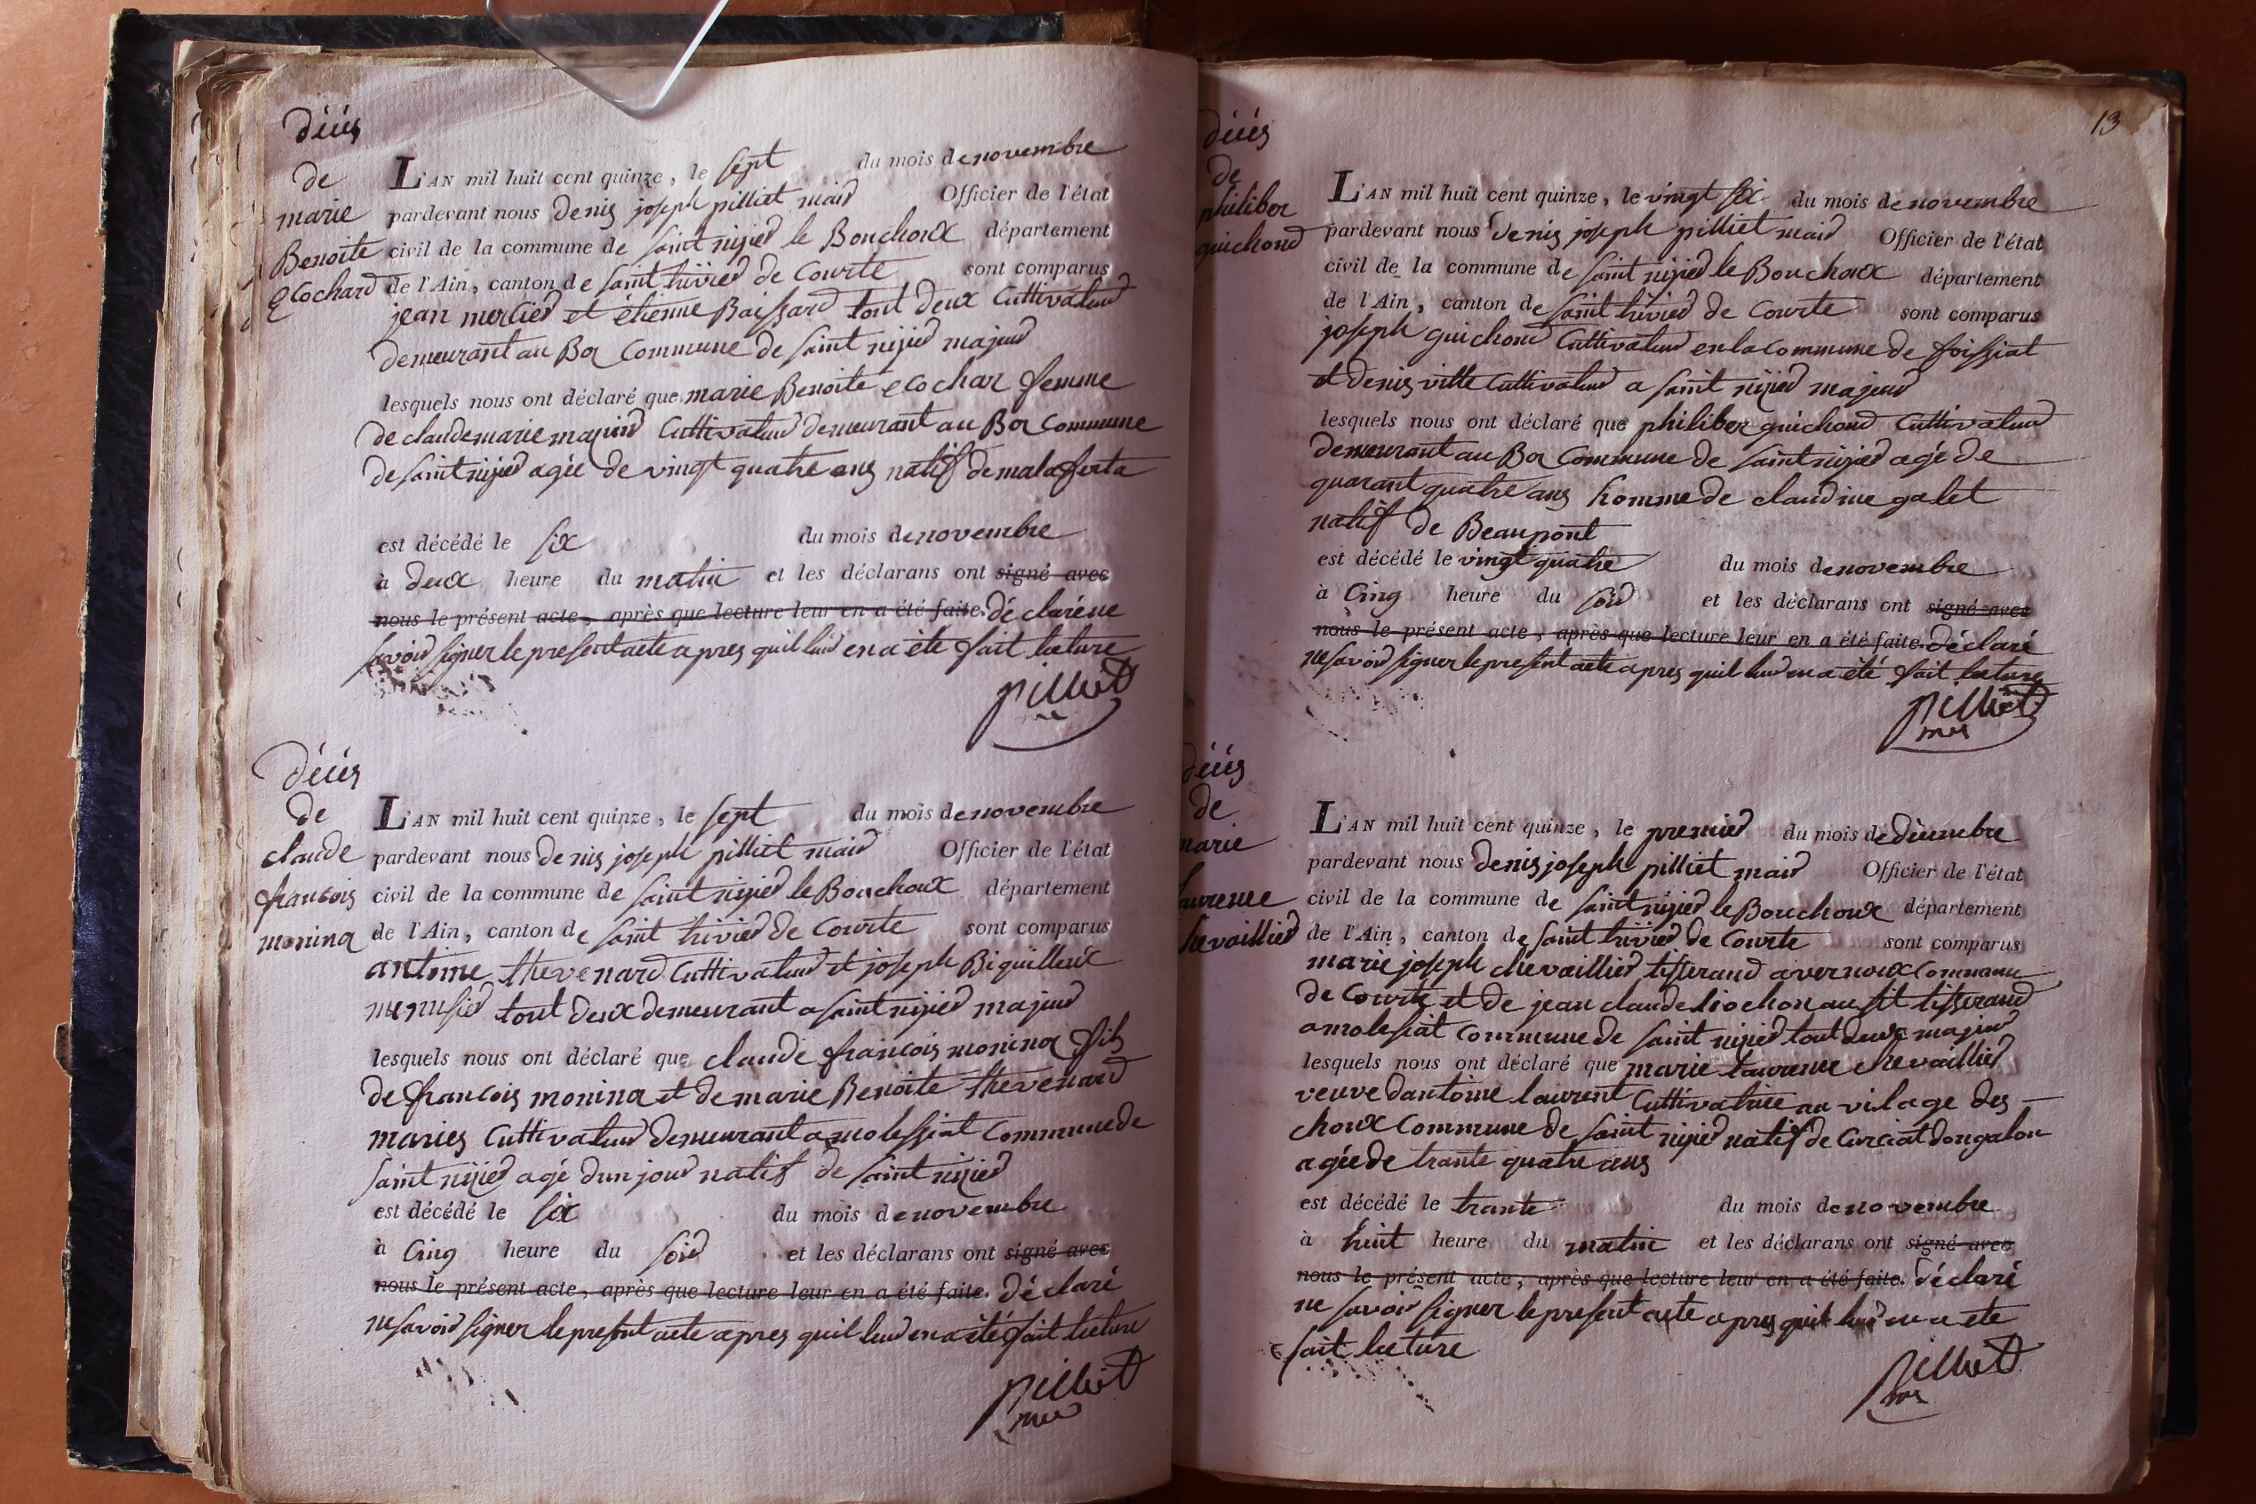 décés
de
marie
Benoite
Ecochard
L'AN mil huit cent quinze, le sept du mois de novembre
pardevant nous denis joseph pilliet maire Officier de l'état
civil de la commune de saint nizier le Bouchoux département
de l'Ain, canton de saint trivier de Courte sont comparus
jean mercier et étienne Baissard tout deux Cultivateur
demeurant au Bor Commune de saint nizier majeur
lesquels nous ont déclaré que marie Benoite ecochar femme
de claude marie Cultivateur demeurant au Bor Commune
de saint nizier agée de vingt quatre ans natif de malaferta
est décédé le six du mois de novembre
à deux heure du matin et les déclarans ont signé avec
nous le présent acte, après que lecture leur en a été faite. déclaré ne
savoir signer le present acte apres quil leur en a été fait lecture
pilliet
décés
de
claude
francois
monina
L'AN mil huit cent quinze, le sept du mois de novembre
pardevant nous denis joseph pilliet maire Officier de l'état
civil de la commune de saint nizier le Bouchoux département
de l'Ain, canton de saint trivier de Courte sont comparus
antoine thevenard Cultivateur et joseph Biguilleux
menusier tout deux demeurant a saint nizier majeur
lesquels nous ont déclaré que claude francois monina fils
de francois monina et de marie Benoite thevenard
maries Cultivateur demeurant a molessiat Commune de
saint nizier agé dun jour natif de saint nizier
est décédé le six du mois de novembre
à Cinq heure du soir et les déclarans ont signé avec
nous le présent acte, après que lecture leur en a été faite. déclaré
ne savoir signer le present acte apres quil leur en a été fait lecture
pilliet
maire
13
décés
de
philiber
guichond
L'AN mil huit cent quinze, le vingt six du mois de novembre
pardevant nous denis joseph pilliet maire Officier de l'état
civil de la commune de saint nizier le Bouchoux département
de l'Ain, canton de saint trivier de Courte sont comparus
joseph guichond Cultivateur en la Commune de foissiat
et denis vitte Cultivateur a saint nizier majeur
lesquels nous ont déclaré que philiber guichond Cultivateur
demeurant au Bor Commune de saint nizier agé de
quarant quatre ans homme de claudine galet
natif de Beaupont
est décédé le vingt quatre du mois de novembre
à Cinq heure du soir et les déclarans ont signé avec
nous le présent acte, après que lecture leur en a été faite. déclaré
ne savoir signer le present acte apres quil leur en a été fait lecture
pilliet
mre
décés
de
marie
laurence
chevaillier
L'AN mil huit cent quinze, le premier du mois de décembre
pardevant nous denis joseph pilliet maire Officier de l'état
civil de la commune de saint nizier le Bouchoux département
de l'Ain, canton de saint trivier de Courte sont comparus
marie joseph chevaillier tisserand a vernoux Commune
de Courte et de jean claude aussi tisserand
a molesiat Commune de saint nizier tout deux majeur
lesquels nous ont déclaré que marie laurence chevaillier
veuve dantoine laurent Cultivatrice au vilage des
choux Commune de saint nizier natif de Curciat dongalon
agée de trante quatre ans
est décédé le trante du mois de novembre
à huit heure du matin et les déclarans ont signé avec
nous le présent acte, après que lecture leur en a été faite. déclaré
ne savoir signer le present acte apres quil leur en a été
fait lecture
pilliet
mre